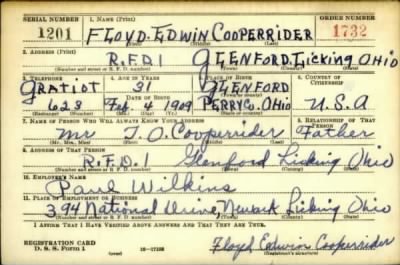 SERIAL NUMBER 1. NAME (Print) ORDER NUMBER
1201 FLOYD EDWIN COOPERRIDER 1732
(First) (Middle) (Last)
2. ADDRESS (Print)
R.F.D 1 GLENFORD, Licking OHIO
(Number and street or R. F. D. number) (Town) (County) (State)
3. TELEPHONE 4. AGE IN YEARS 5. PLACE OF BIRTH 6. COUNTRY OF CITIZENSHIP
GRATIOT 31 GLENFORD
DATE OF BIRTH
623 Feb 4 1909 PERRY Co. OHIO U.S.A
7. NAME OF PERSON WHO WILL ALWAYS KNOW YOUR ADDRESS 8. RELATIONSHIP OF THAT PERSON
Mr. Cooperrider Father
(Mr., Mrs., Miss) (First) (Middle) (Last)
9. ADDRESS OF THAT PERSON
R.F.D. 1 Glenford Licking Ohio
(Number and street or R. F. D. number) (Town) (County) (State)
10. EMPLOYER'S NAME
Paul Wilkins
11. PLACE OF EMPLOYMENT OR BUSINESS
394 National Drive, Newark Licking Ohio
(Number and street or R. F. D. number) (Town) (County) (State)
I AFFIRM THAT I HAVE VERIFIED ABOVE ANSWERS AND THAT THEY ARE TRUE.
REGISTRATION CARD
D. S. S. Form 1 Floyd Edwin Cooperrider
(Registrant's signature)